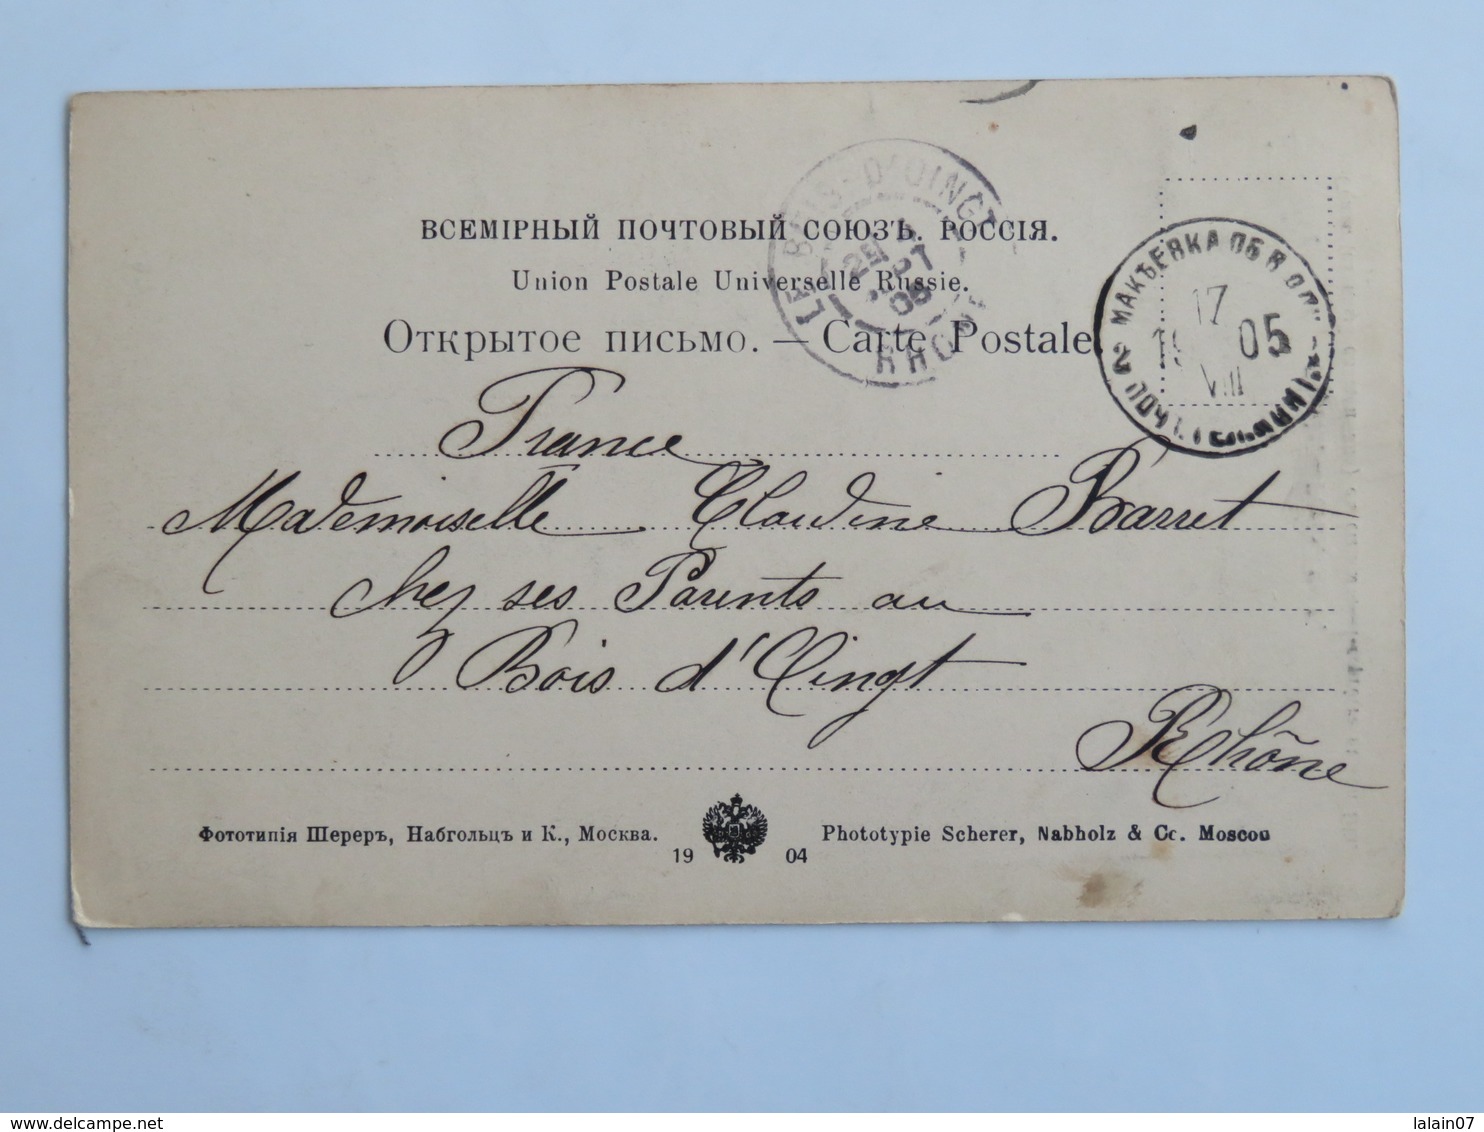 ВСЕМІРНЫЙ ПОЧТОВЫЙ СОЮЗЪ. РОССІЯ.
Union Postale Universelle Russie.
Открытое письмо. — Carte Postale
LE BOIS-D'OINGT
RHONE
05
МАКѢЕВКА ОБ. В. Д.
17
19 05
VIII
2
France
Mademoiselle Claudine Barret
chez ses Parents au
Bois d'Oingt
Rhône
Фототипія Шереръ, Набгольцъ и К., Москва.
19 04
Phototypie Scherer, Nabholz & Co. Moscou
delcampe.net
lalain07